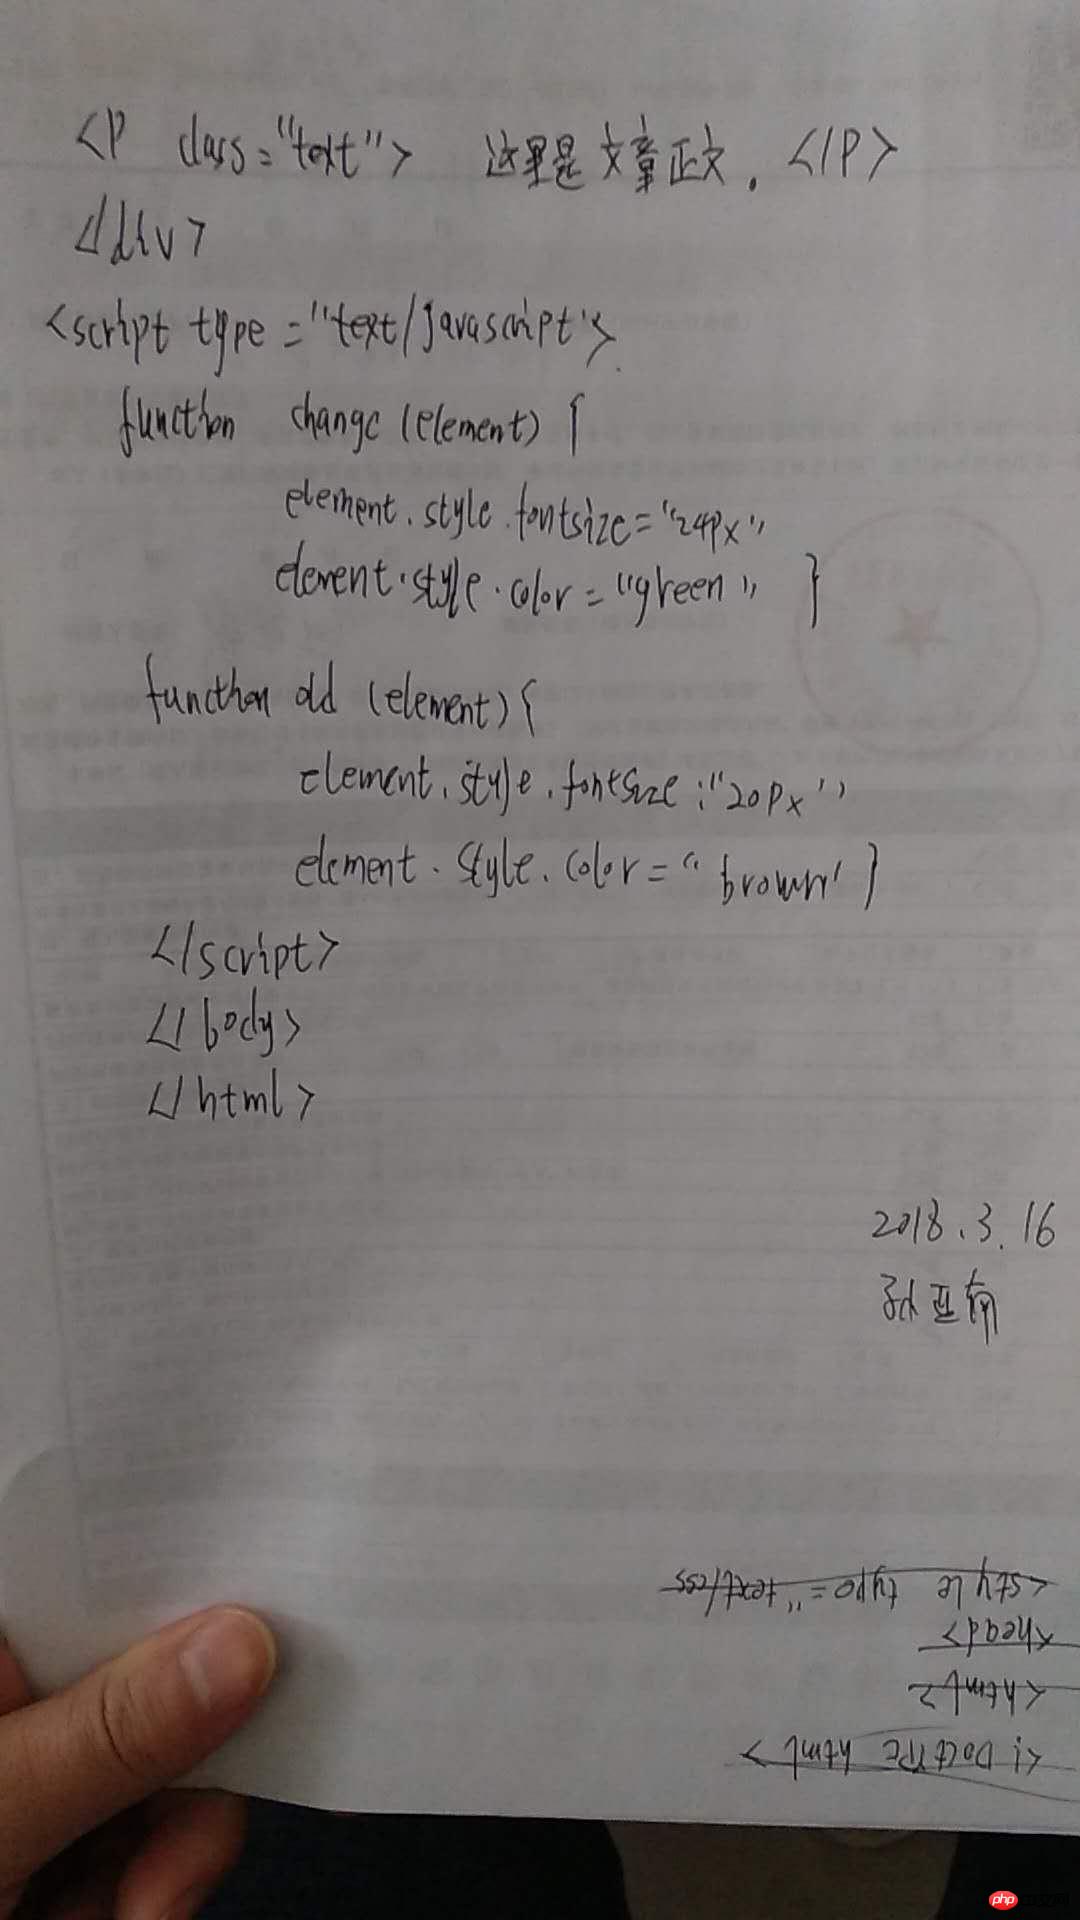 <P class="text"> 这里是文章正文. </P>
</div>
<script type="text/javascript">
function change (element) {
element.style.fontsize="24px"
element.style.color="green" }
function old (element) {
element.style.fontsize:"20px"
element.style.color="brown" }
</script>
</body>
</html>
2018.3.16
孙亚
<style type="text/css
<head>
<html>
html>
php